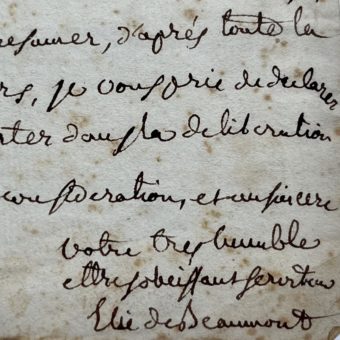 resumer, d'aprés toute la
rs, je vous prie de declarer
nter dans la deliberation
consideration, et un sincere
votre tres humble
et tres obeissant serviteur
Elie de Beaumont